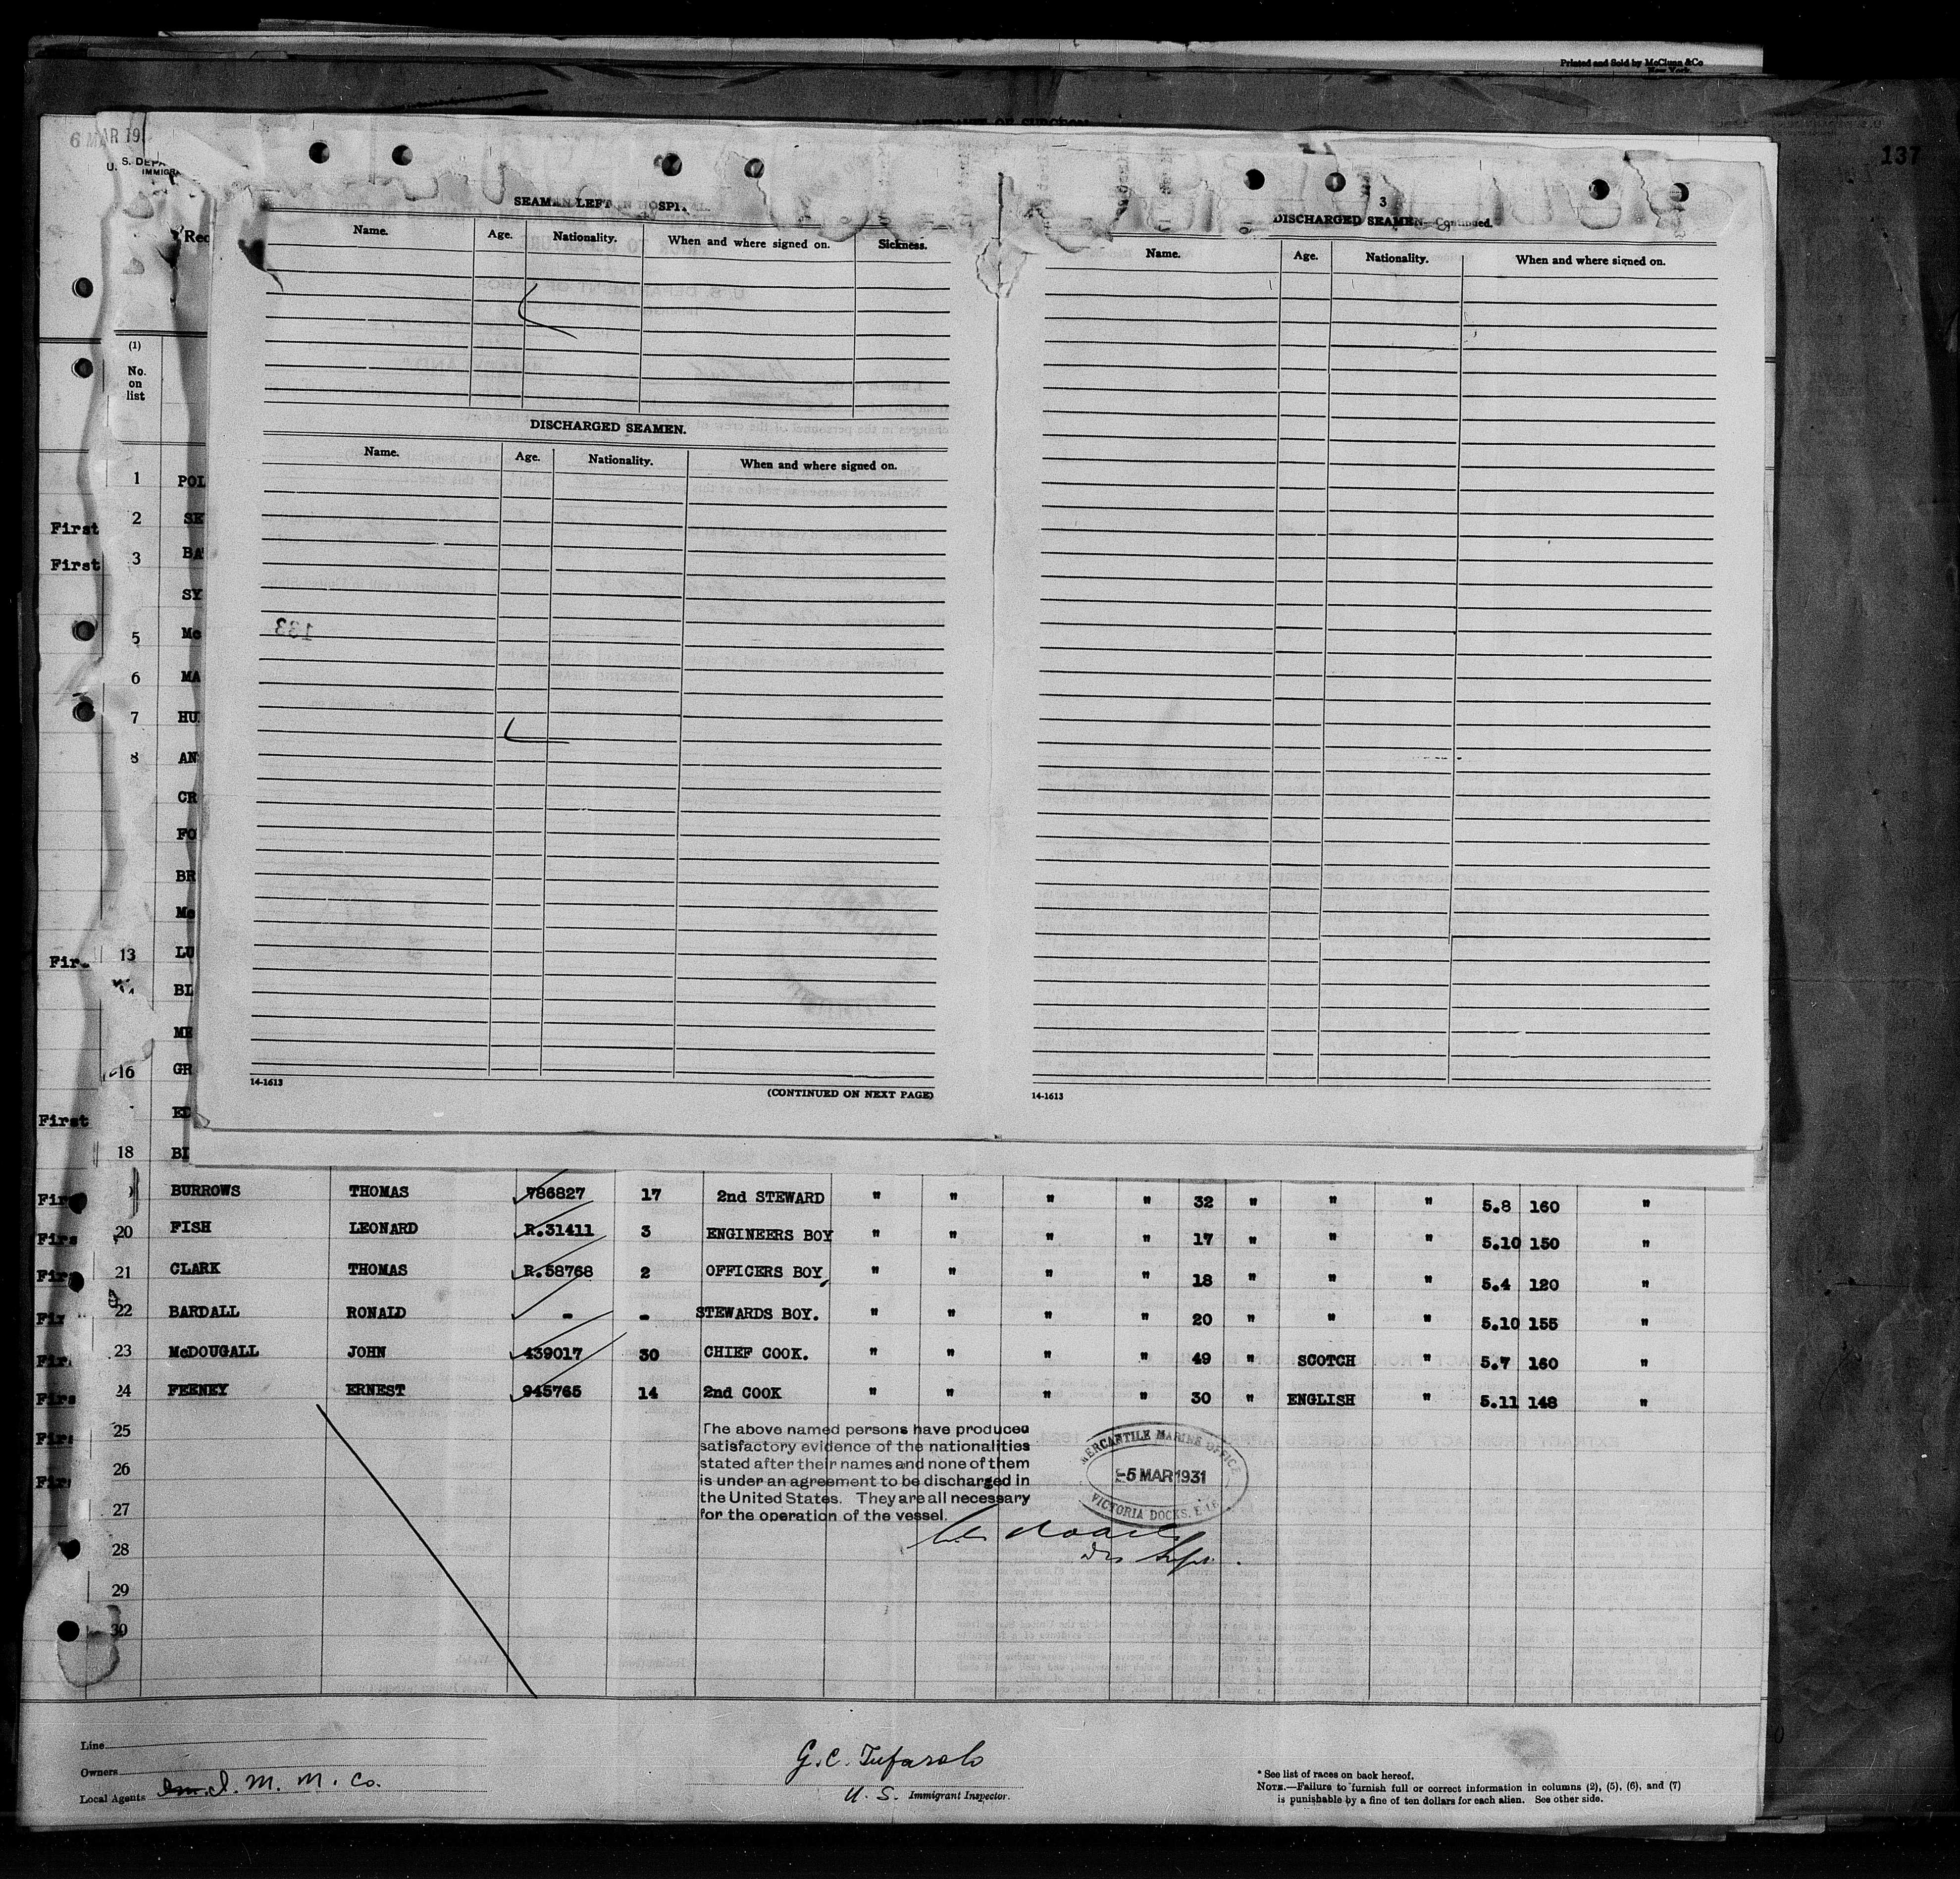 Printed and Sold by McClunn & Co
New York.
137
6 MAR 19
U. S. DEPA
IMMIGRA
Rec
SEAMEN LEFT IN HOSPI
Name. Age. Nationality. When and where signed on. Sickness.
DISCHARGED SEAMEN.
Name. Age. Nationality. When and where signed on.
14-1613
(CONTINUED ON NEXT PAGE)
3
DISCHARGED SEAMEN—Continued.
Name. Age. Nationality. When and where signed on.
14-1613
(1)
No.
on
list
1 POL
First 2 SK
First 3 BA
SY
5 Mc
6 MA
7 HU
8 AN
CR
FO
BR
Mc
Fir 13 LU
BL
ME
16 GR
First ED
18 BI
Firs BURROWS THOMAS 786827 17 2nd STEWARD " " " " 32 " " " 5.8 160 "
Firs 20 FISH LEONARD R.31411 3 ENGINEERS BOY " " " " 17 " " " 5.10 150 "
Firs 21 CLARK THOMAS R.58768 2 OFFICERS BOY, " " " " 18 " " " 5.4 120 "
Fir 22 BARDALL RONALD - - STEWARDS BOY. " " " " 20 " " " 5.10 155 "
Firs 23 McDOUGALL JOHN 439017 30 CHIEF COOK. " " " " 49 " SCOTCH " 5.7 160 "
Firs 24 FEENEY ERNEST 945765 14 2nd COOK " " " " 30 " ENGLISH " 5.11 148 "
Firs 25
Firs 26
27
28
29
30
The above named persons have produced
satisfactory evidence of the nationalities
stated after their names and none of them
is under an agreement to be discharged in
the United States. They are all necessary
for the operation of the vessel.
MERCANTILE MARINE OFFICE
-5 MAR 1931
VICTORIA DOCKS. E.16
Line
Owners
Local Agents I. M. M. Co.
G. C. Tufarolo
U. S. Immigrant Inspector.
* See list of races on back hereof.
NOTE.—Failure to furnish full or correct information in columns (2), (5), (6), and (7)
is punishable by a fine of ten dollars for each alien. See other side.